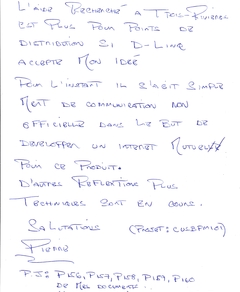 L'AIDE RECHERCHÉ A TROIS-RIVIÈRES
EST PLUS POUR POINTS DE
DISTRIBUTION SI D-LINK
ACCEPTE MON IDÉE
POUR L'INSTANT IL S'AGIT SIMPLE
MENT DE COMMUNICATION NON
OFFICIELLE DANS LE BUT DE
DEVELOPPER UN INTERET MUTUEL
POUR CE PRODUIT.
D'AUTRES REFLEXTIONS PLUS
TECHNIQUES SONT EN COURS.
SALUTATIONS (PROJET:
PIERRE
P.J: P156, P157, P158, P159, P160
DE MES DOCUMENTS